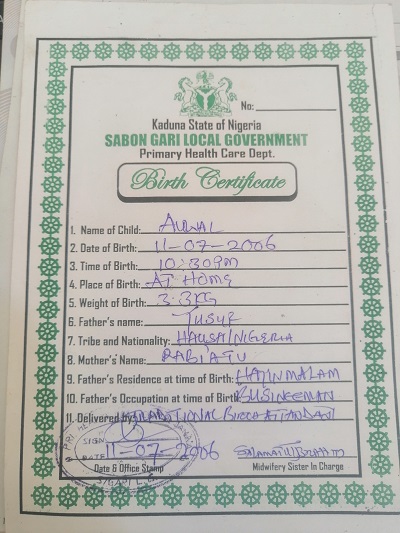 No:
Kaduna State of Nigeria
SABON GARI LOCAL GOVERNMENT
Primary Health Care Dept.
Birth Certificate
1. Name of Child: AUWAL
2. Date of Birth: 11-07-2006
3. Time of Birth: 10:30PM
4. Place of Birth: AT HOME
5. Weight of Birth: 3.3KG
6. Father's name: YUSUF
7. Tribe and Nationality: HAUSA/NIGERIA
8. Mother's Name: RABI'ATU
9. Father's Residence at time of Birth: HAYIN MALAM
10. Father's Occupation at time of Birth BUSINEEMAN
11. Delivered by TRADITIONAL
SIGN
DATE 11-07-2006
Date & Office Stamp Midwifery Sister In Charge